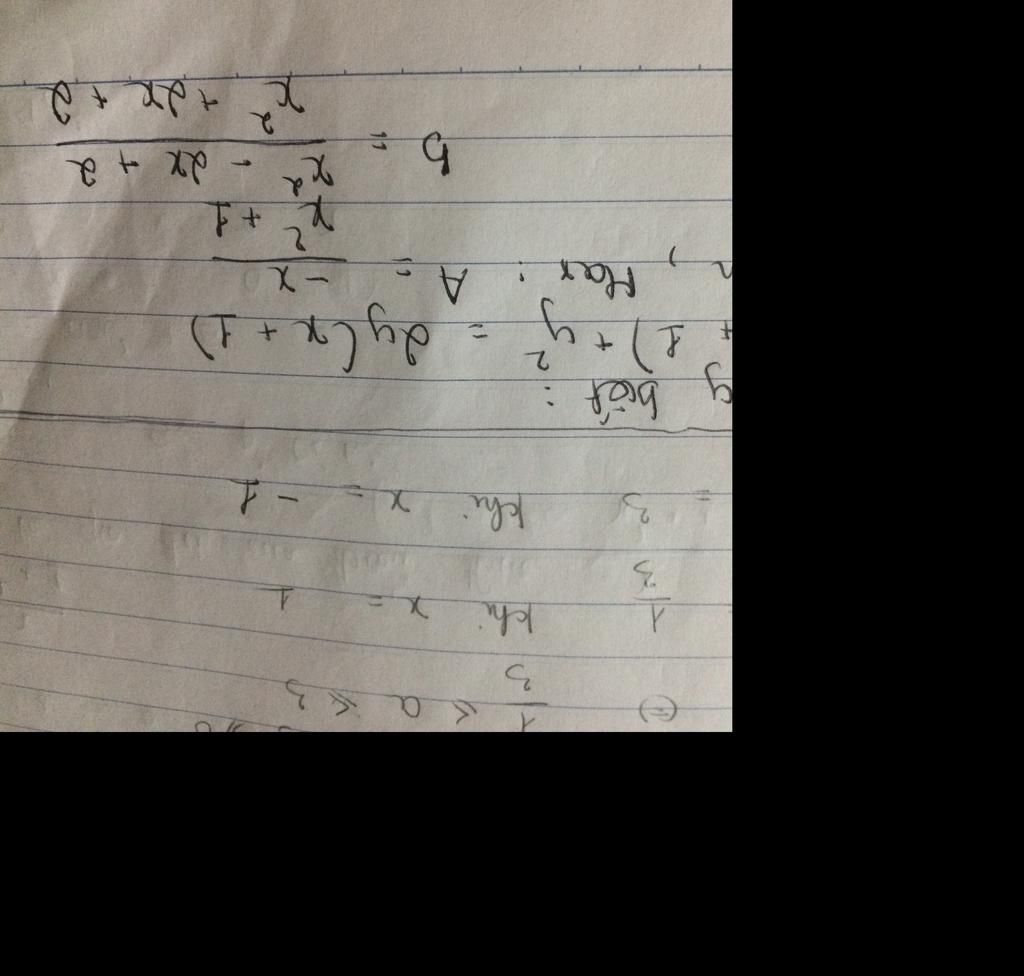 (=) 1/3 ≤ a ≤ 3
1/3 khi x = 1
= 3 khi x = - 1
y biết :
+ 1) + y² = 2y(x + 1)
, Max : A = -x / x² + 1
B = x² - 2x + 2 / x² + 2x + 2